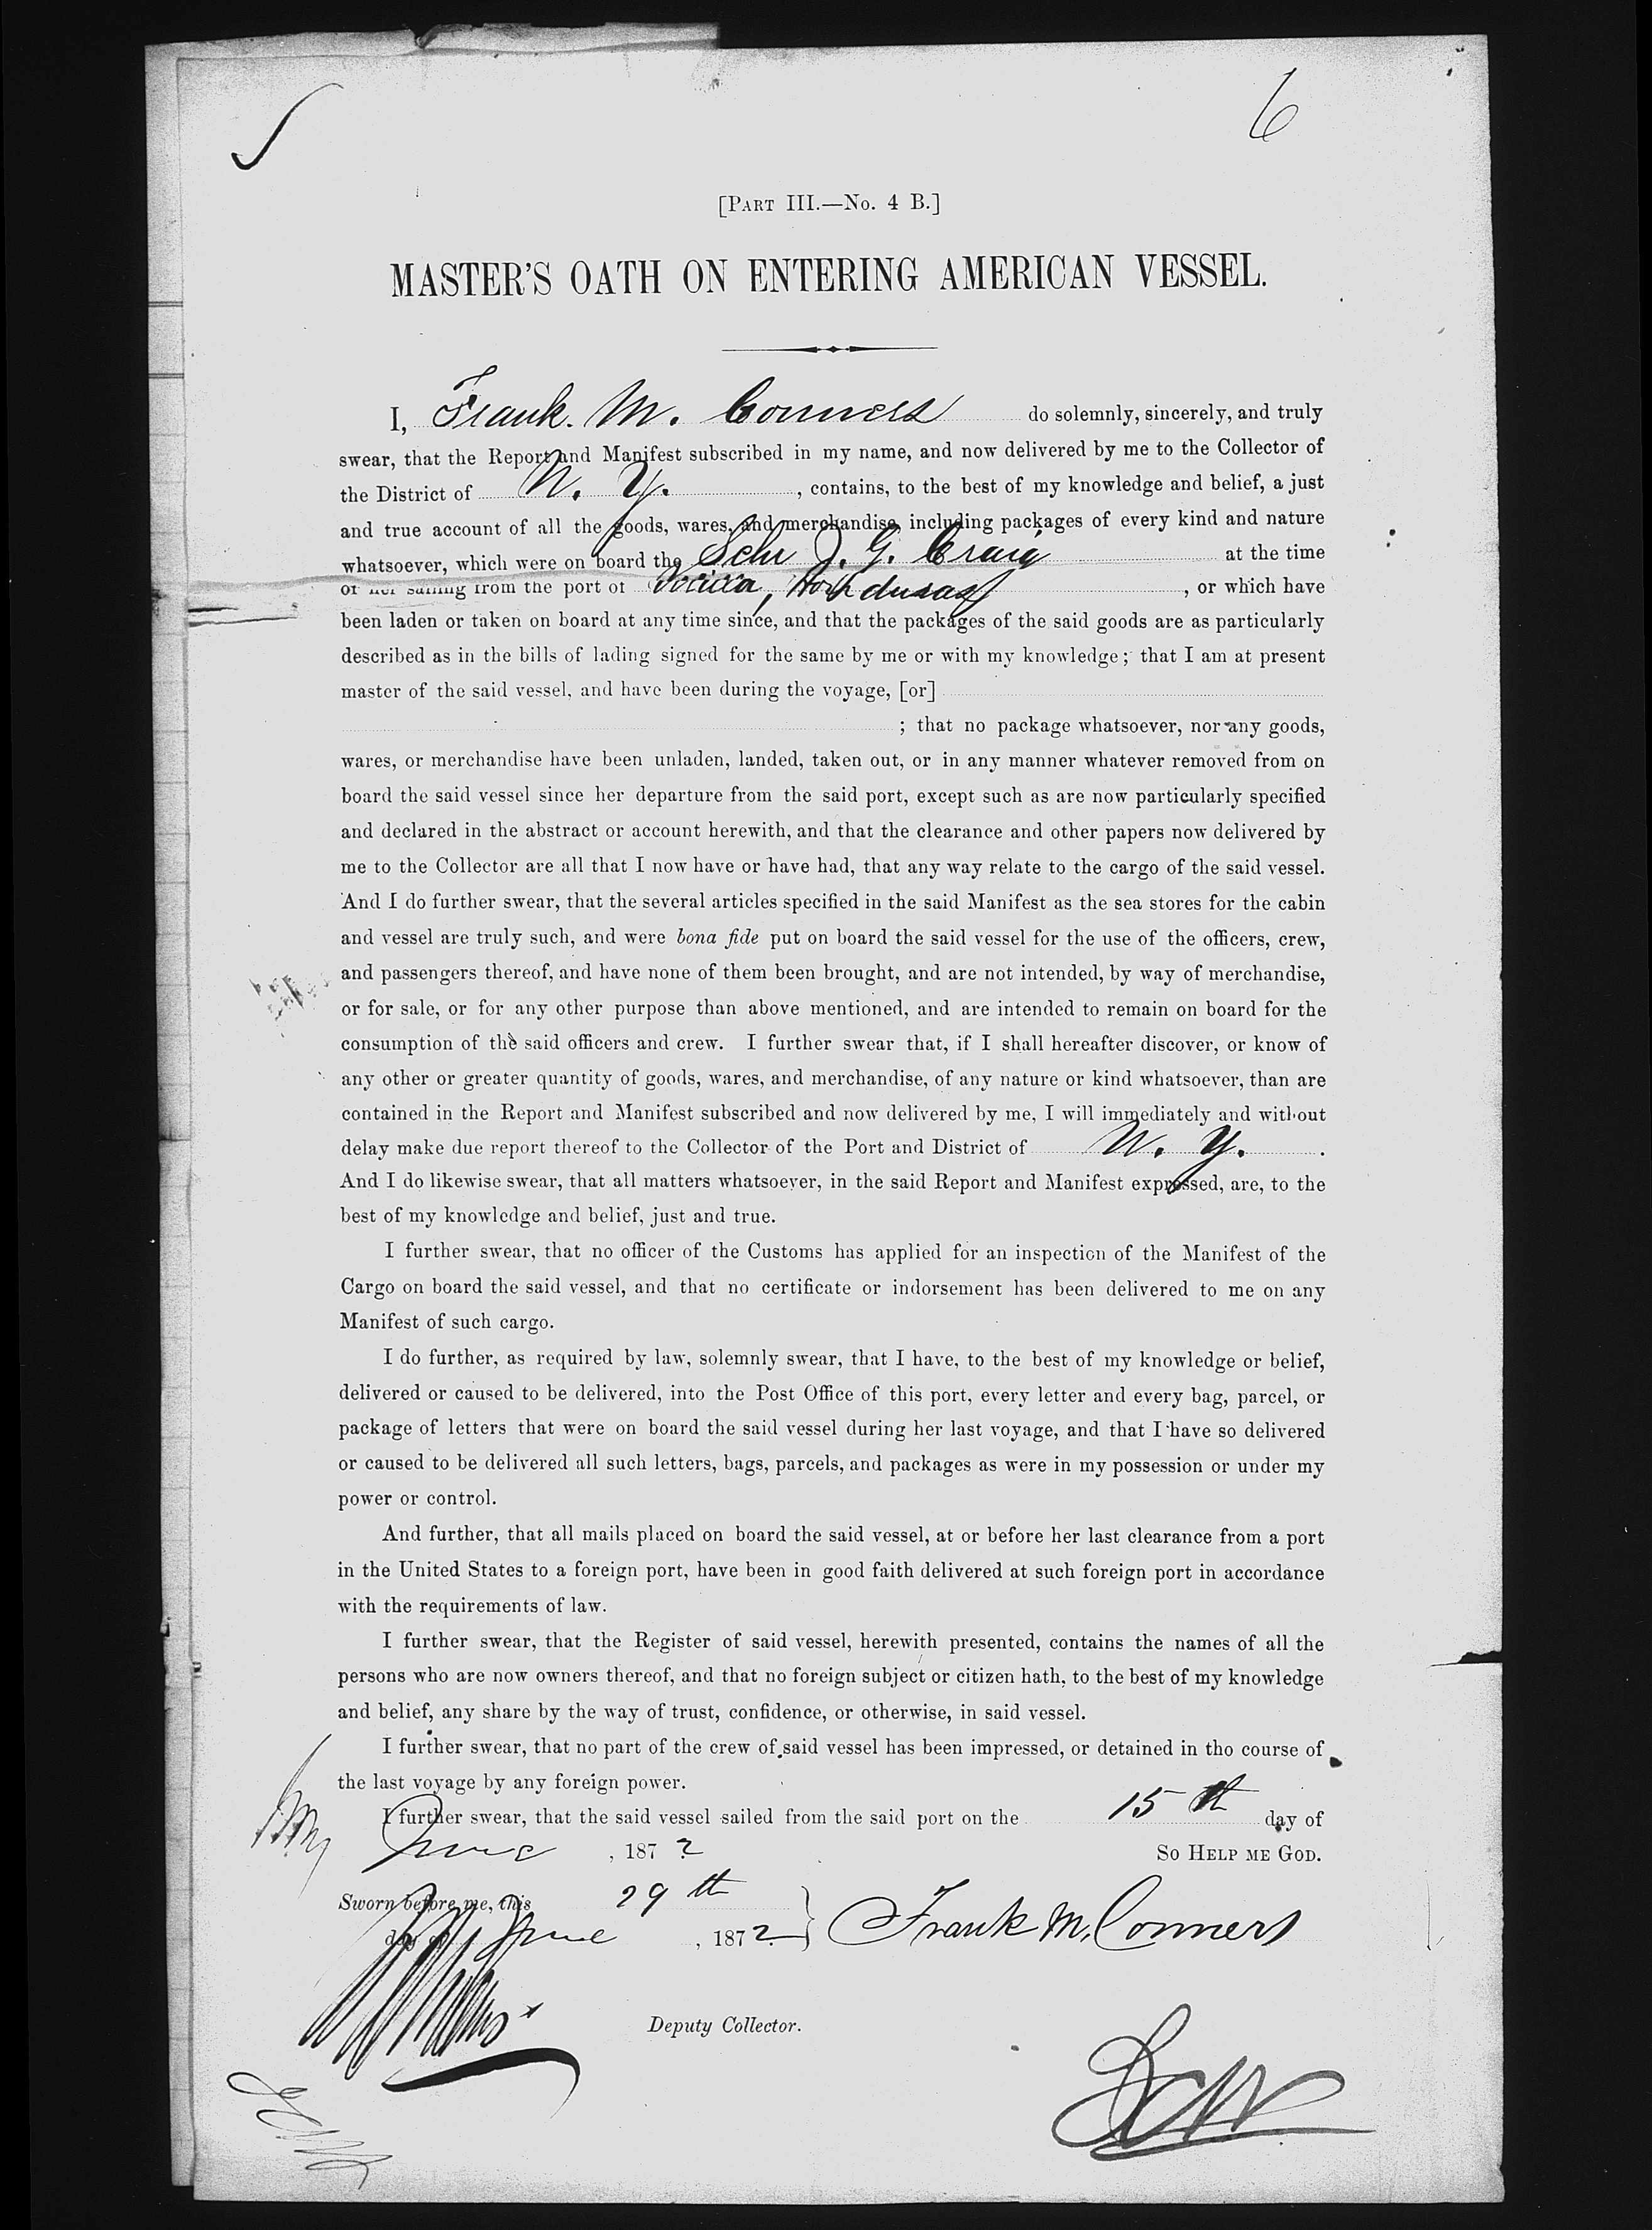 6
[PART III.—No. 4 B.]
MASTER'S OATH ON ENTERING AMERICAN VESSEL.
I, Frank. M. Conners do solemnly, sincerely, and truly
swear, that the Report and Manifest subscribed in my name, and now delivered by me to the Collector of
the District of N. Y. , contains, to the best of my knowledge and belief, a just
and true account of all the goods, wares, and merchandise, including packages of every kind and nature
whatsoever, which were on board the Schr J. G. Craig at the time
of her sailing from the port of Honduras , or which have
been laden or taken on board at any time since, and that the packages of the said goods are as particularly
described as in the bills of lading signed for the same by me or with my knowledge; that I am at present
master of the said vessel, and have been during the voyage, [or]
; that no package whatsoever, nor any goods,
wares, or merchandise have been unladen, landed, taken out, or in any manner whatever removed from on
board the said vessel since her departure from the said port, except such as are now particularly specified
and declared in the abstract or account herewith, and that the clearance and other papers now delivered by
me to the Collector are all that I now have or have had, that any way relate to the cargo of the said vessel.
And I do further swear, that the several articles specified in the said Manifest as the sea stores for the cabin
and vessel are truly such, and were bona fide put on board the said vessel for the use of the officers, crew,
and passengers thereof, and have none of them been brought, and are not intended, by way of merchandise,
or for sale, or for any other purpose than above mentioned, and are intended to remain on board for the
consumption of the said officers and crew. I further swear that, if I shall hereafter discover, or know of
any other or greater quantity of goods, wares, and merchandise, of any nature or kind whatsoever, than are
contained in the Report and Manifest subscribed and now delivered by me, I will immediately and without
delay make due report thereof to the Collector of the Port and District of N. Y. .
And I do likewise swear, that all matters whatsoever, in the said Report and Manifest expressed, are, to the
best of my knowledge and belief, just and true.
I further swear, that no officer of the Customs has applied for an inspection of the Manifest of the
Cargo on board the said vessel, and that no certificate or indorsement has been delivered to me on any
Manifest of such cargo.
I do further, as required by law, solemnly swear, that I have, to the best of my knowledge or belief,
delivered or caused to be delivered, into the Post Office of this port, every letter and every bag, parcel, or
package of letters that were on board the said vessel during her last voyage, and that I have so delivered
or caused to be delivered all such letters, bags, parcels, and packages as were in my possession or under my
power or control.
And further, that all mails placed on board the said vessel, at or before her last clearance from a port
in the United States to a foreign port, have been in good faith delivered at such foreign port in accordance
with the requirements of law.
I further swear, that the Register of said vessel, herewith presented, contains the names of all the
persons who are now owners thereof, and that no foreign subject or citizen hath, to the best of my knowledge
and belief, any share by the way of trust, confidence, or otherwise, in said vessel.
I further swear, that no part of the crew of said vessel has been impressed, or detained in tho course of
the last voyage by any foreign power.
I further swear, that the said vessel sailed from the said port on the 15th day of
June , 1872 SO HELP ME GOD.
Sworn before me, this 29th
day of June , 1872 } Frank M. Conners
Deputy Collector.